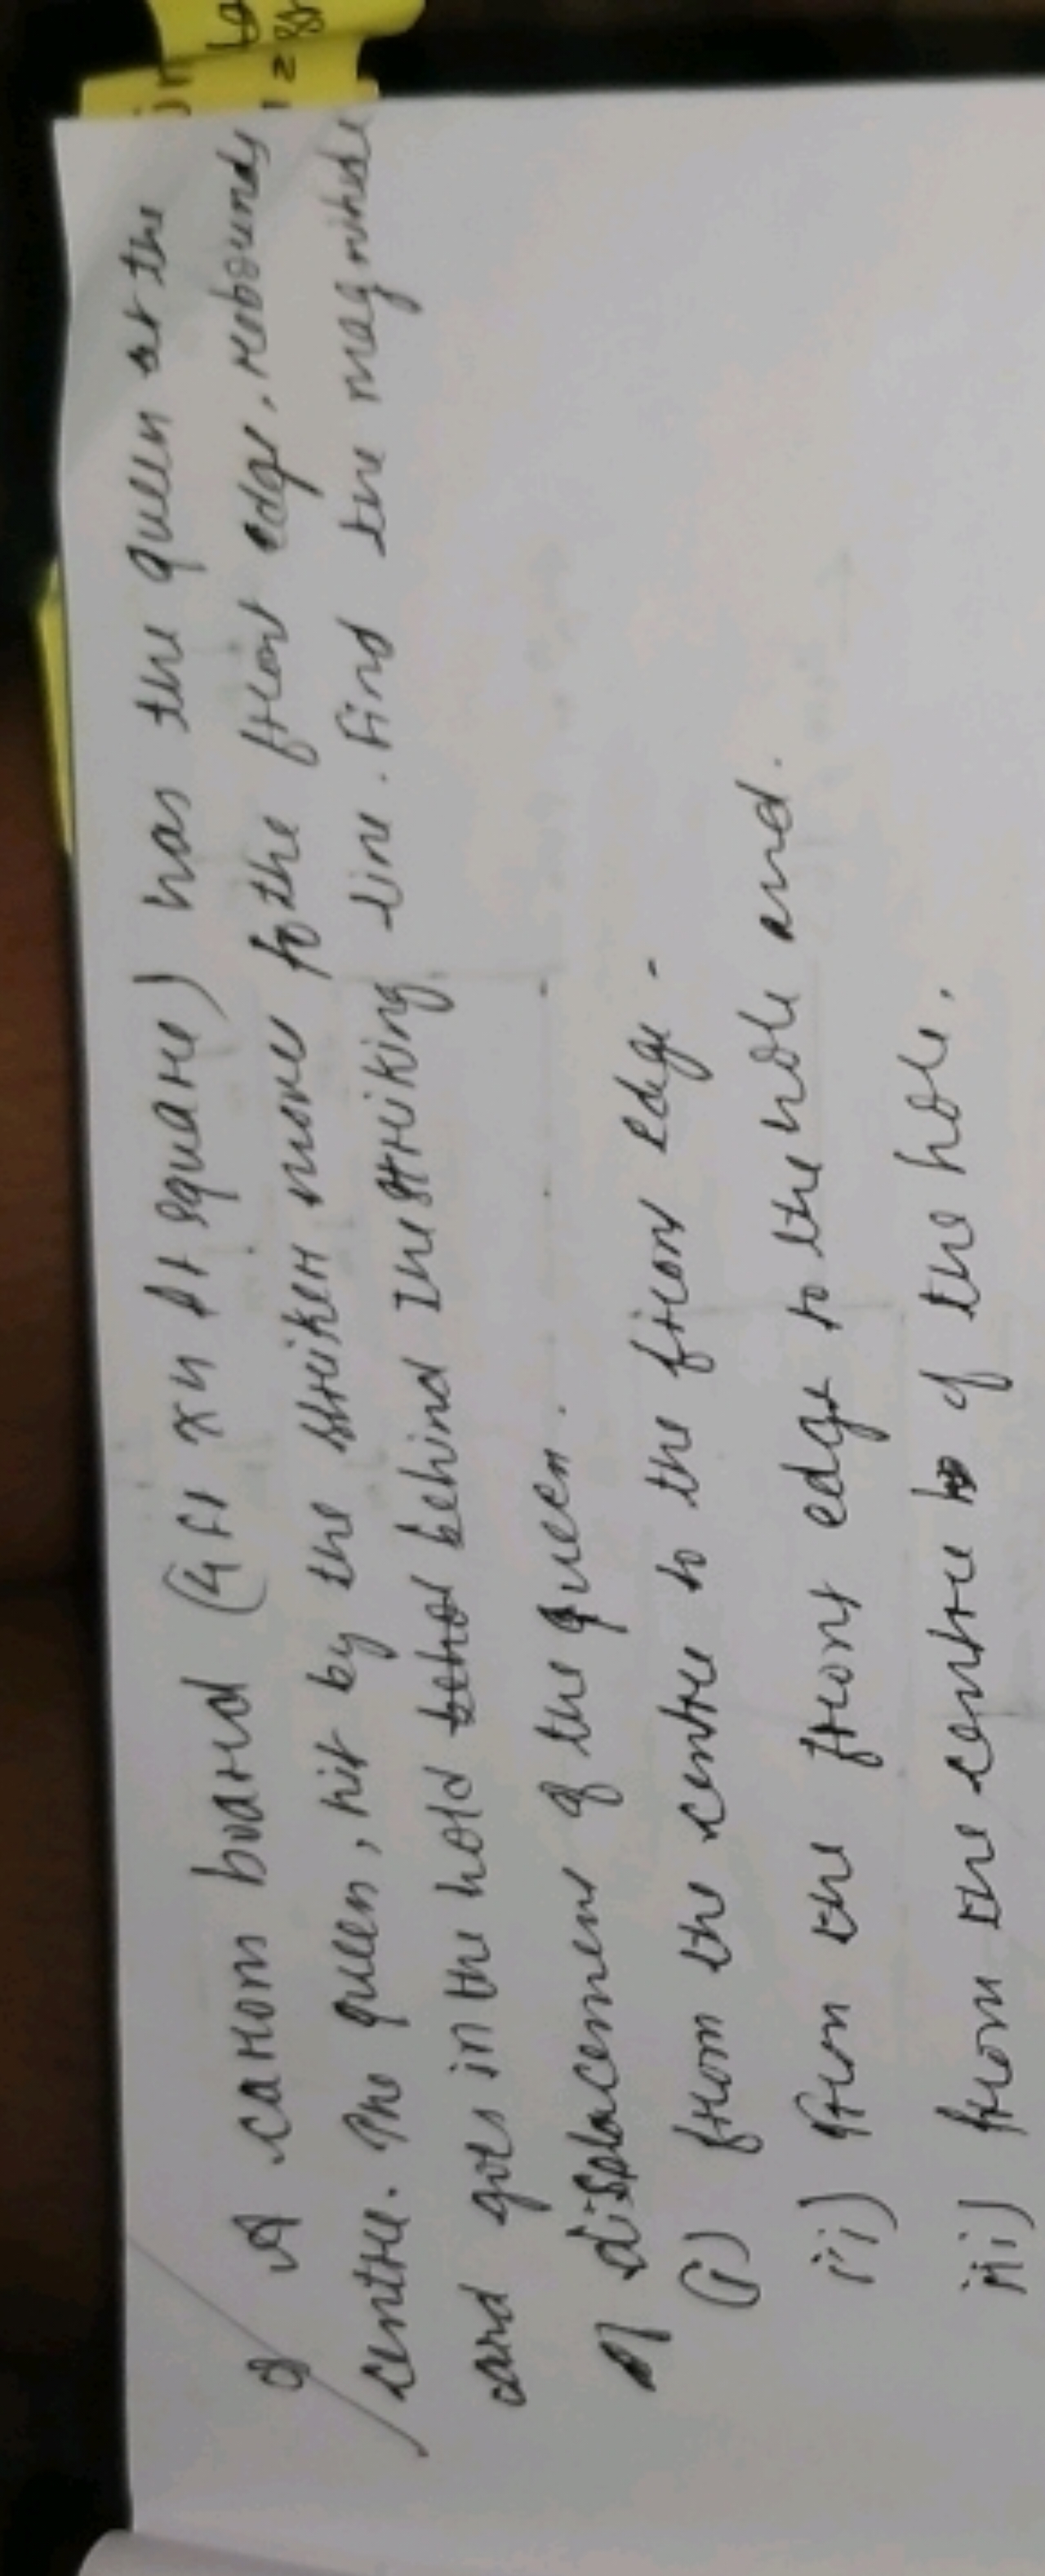 Q A carom board (4 ft x 4 ft square) has the queen at the
centre. The queen, hit by the striker move to the front edge, rebounds
and goes in the hold behind the striking line. Find the magnitude
of displacement of the queen.
(i) from the centre to the front edge.
ii) from the front edge to the hole and.
iii) from the centre of the hole.